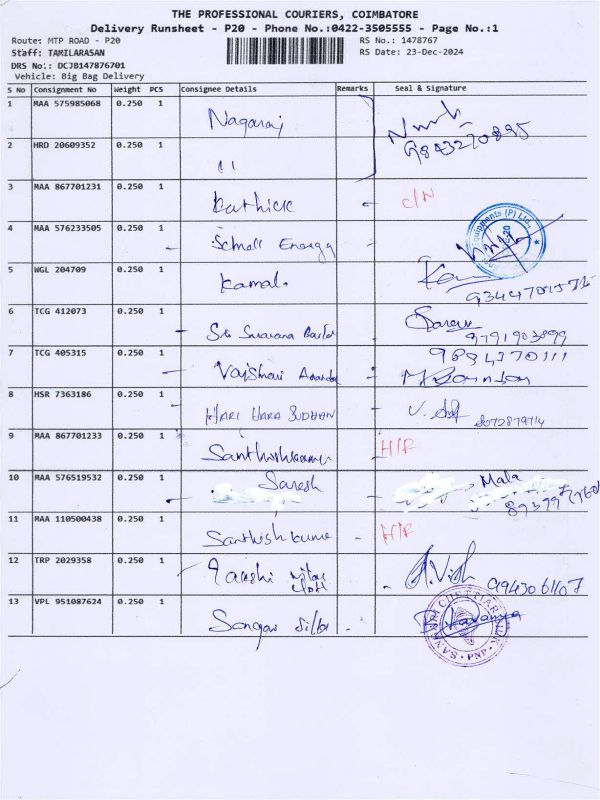 THE PROFESSIONAL COURIERS, COIMBATORE
Delivery Runsheet - P20 - Phone No.:0422-3505555 - Page No.:1
Route: MTP ROAD - P20 RS No.: 1478767
Staff: TAMILARASAN RS Date: 23-Dec-2024
DRS No.: DCJB147876701
Vehicle: Big Bag Delivery
S No Consignment No Weight PCS Consignee Details Remarks Seal & Signature
1 MAA 575985068 0.250 1 Nagaraj
9843270895
2 HRD 20609352 0.250 1 11
3 MAA 867701231 0.250 1 Karthick C/N
4 MAA 576233505 0.250 1 Schnell Energy
5 WGL 204709 0.250 1 Kamal
6 TCG 412073 0.250 1 Sri Saravana
9791903899
7 TCG 405315 0.250 1 9884370111
8 HSR 7363186 0.250 1 HARI HARA SUDHAN
8072879714
9 MAA 867701233 0.250 1 Santhoshkumar
10 MAA 576519532 0.250 1 Suresh Mala
11 MAA 110500438 0.250 1 Santhosh kumar
12 TRP 2029358 0.250 1
13 VPL 951087624 0.250 1